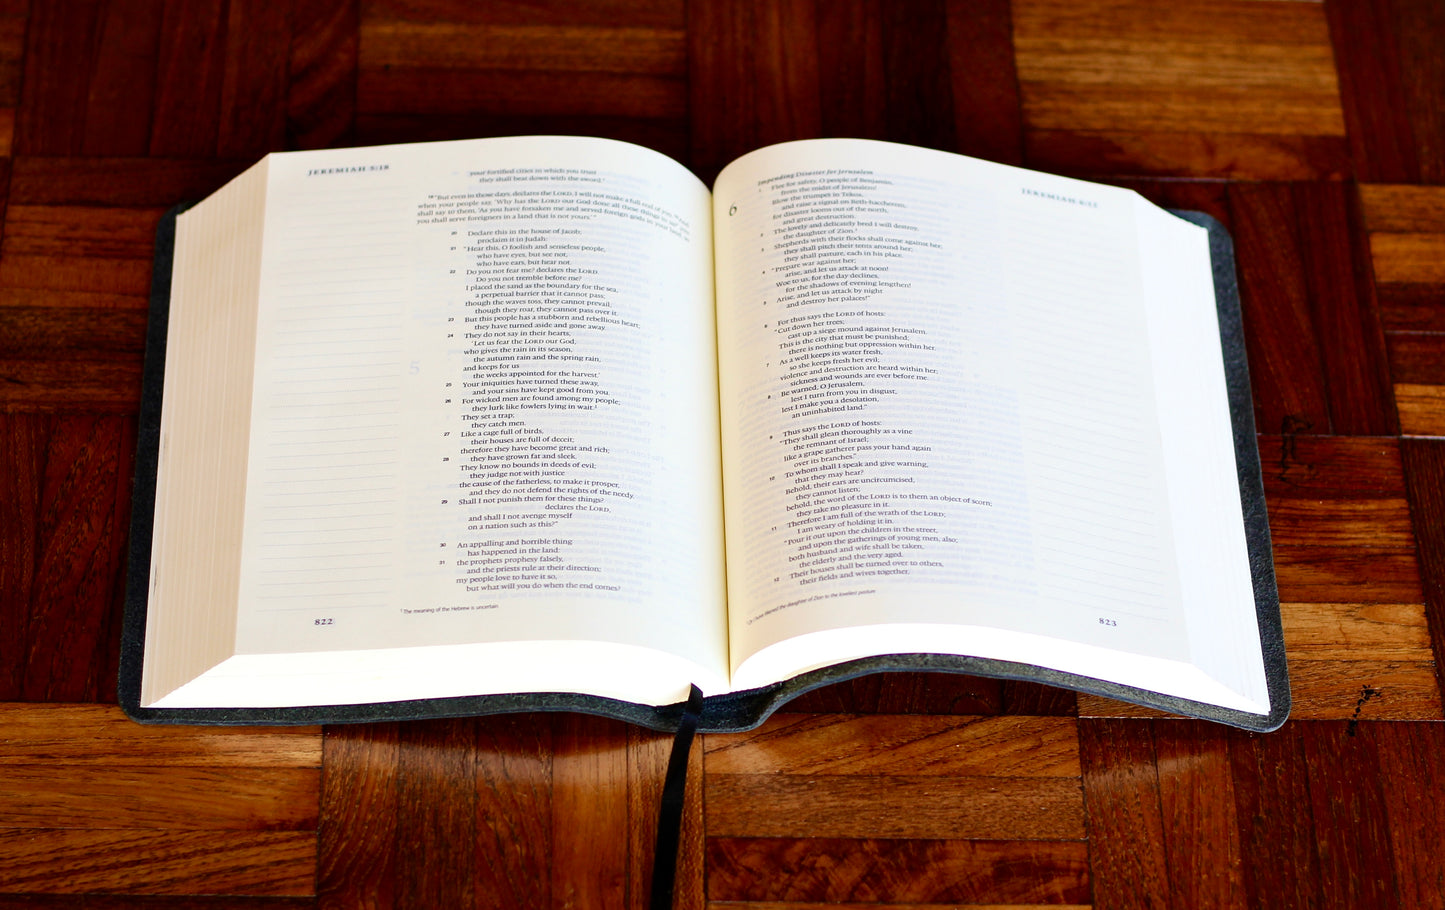 JEREMIAH 5:18
your fortified cities in which you trust
they shall beat down with the sword."
18 "But even in those days, declares the LORD, I will not make a full end of you. 19 And
when your people say, 'Why has the LORD our God done all these things to us?' you
shall say to them, 'As you have forsaken me and served foreign gods in your land, so
you shall serve foreigners in a land that is not yours.'"
20 Declare this in the house of Jacob;
proclaim it in Judah:
21 "Hear this, O foolish and senseless people,
who have eyes, but see not,
who have ears, but hear not.
22 Do you not fear me? declares the LORD.
Do you not tremble before me?
I placed the sand as the boundary for the sea,
a perpetual barrier that it cannot pass;
though the waves toss, they cannot prevail;
though they roar, they cannot pass over it.
23 But this people has a stubborn and rebellious heart;
they have turned aside and gone away.
24 They do not say in their hearts,
'Let us fear the LORD our God,
who gives the rain in its season,
the autumn rain and the spring rain,
and keeps for us
the weeks appointed for the harvest.'
25 Your iniquities have turned these away,
and your sins have kept good from you.
26 For wicked men are found among my people;
they lurk like fowlers lying in wait.1
They set a trap;
they catch men.
27 Like a cage full of birds,
their houses are full of deceit;
therefore they have become great and rich;
28 they have grown fat and sleek.
They know no bounds in deeds of evil;
they judge not with justice
the cause of the fatherless, to make it prosper,
and they do not defend the rights of the needy.
29 Shall I not punish them for these things?
declares the LORD,
and shall I not avenge myself
on a nation such as this?"
30 An appalling and horrible thing
has happened in the land:
31 the prophets prophesy falsely,
and the priests rule at their direction;
my people love to have it so,
but what will you do when the end comes?
1 The meaning of the Hebrew is uncertain
822
JEREMIAH 6:12
Impending Disaster for Jerusalem
6
1 Flee for safety, O people of Benjamin,
from the midst of Jerusalem!
Blow the trumpet in Tekoa,
and raise a signal on Beth-haccherem,
for disaster looms out of the north,
and great destruction.
2 The lovely and delicately bred I will destroy,
the daughter of Zion.1
3 Shepherds with their flocks shall come against her;
they shall pitch their tents around her;
they shall pasture, each in his place.
4 "Prepare war against her;
arise, and let us attack at noon!
Woe to us, for the day declines,
for the shadows of evening lengthen!
5 Arise, and let us attack by night
and destroy her palaces!"
6 For thus says the LORD of hosts:
"Cut down her trees;
cast up a siege mound against Jerusalem.
This is the city that must be punished;
there is nothing but oppression within her.
7 As a well keeps its water fresh,
so she keeps fresh her evil;
violence and destruction are heard within her;
sickness and wounds are ever before me.
8 Be warned, O Jerusalem,
lest I turn from you in disgust,
lest I make you a desolation,
an uninhabited land."
9 Thus says the LORD of hosts:
"They shall glean thoroughly as a vine
the remnant of Israel;
like a grape gatherer pass your hand again
over its branches."
10 To whom shall I speak and give warning,
that they may hear?
Behold, their ears are uncircumcised,
they cannot listen;
behold, the word of the LORD is to them an object of scorn;
they take no pleasure in it.
11 Therefore I am full of the wrath of the LORD;
I am weary of holding it in.
"Pour it out upon the children in the street,
and upon the gatherings of young men, also;
both husband and wife shall be taken,
the elderly and the very aged.
12 Their houses shall be turned over to others,
their fields and wives together,
1 Or I have likened the daughter of Zion to the loveliest pasture
823